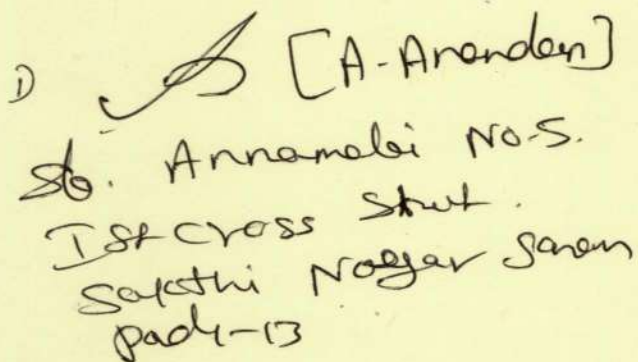 1) [A-Anandan]
S/o. Annamalai No-5.
Ist cross Street.
Sakthi Nagar Saram
pady-13